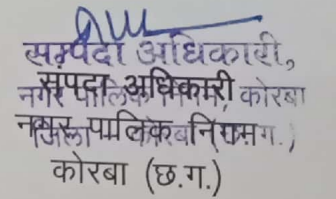 सम्पदा अधिकारी,
संपदा अधिकारी
नगर पालिक निगम, कोरबा
नगर पालिक निगम
जिला कोरबा (छ.ग.)
कोरबा (छ.ग.)